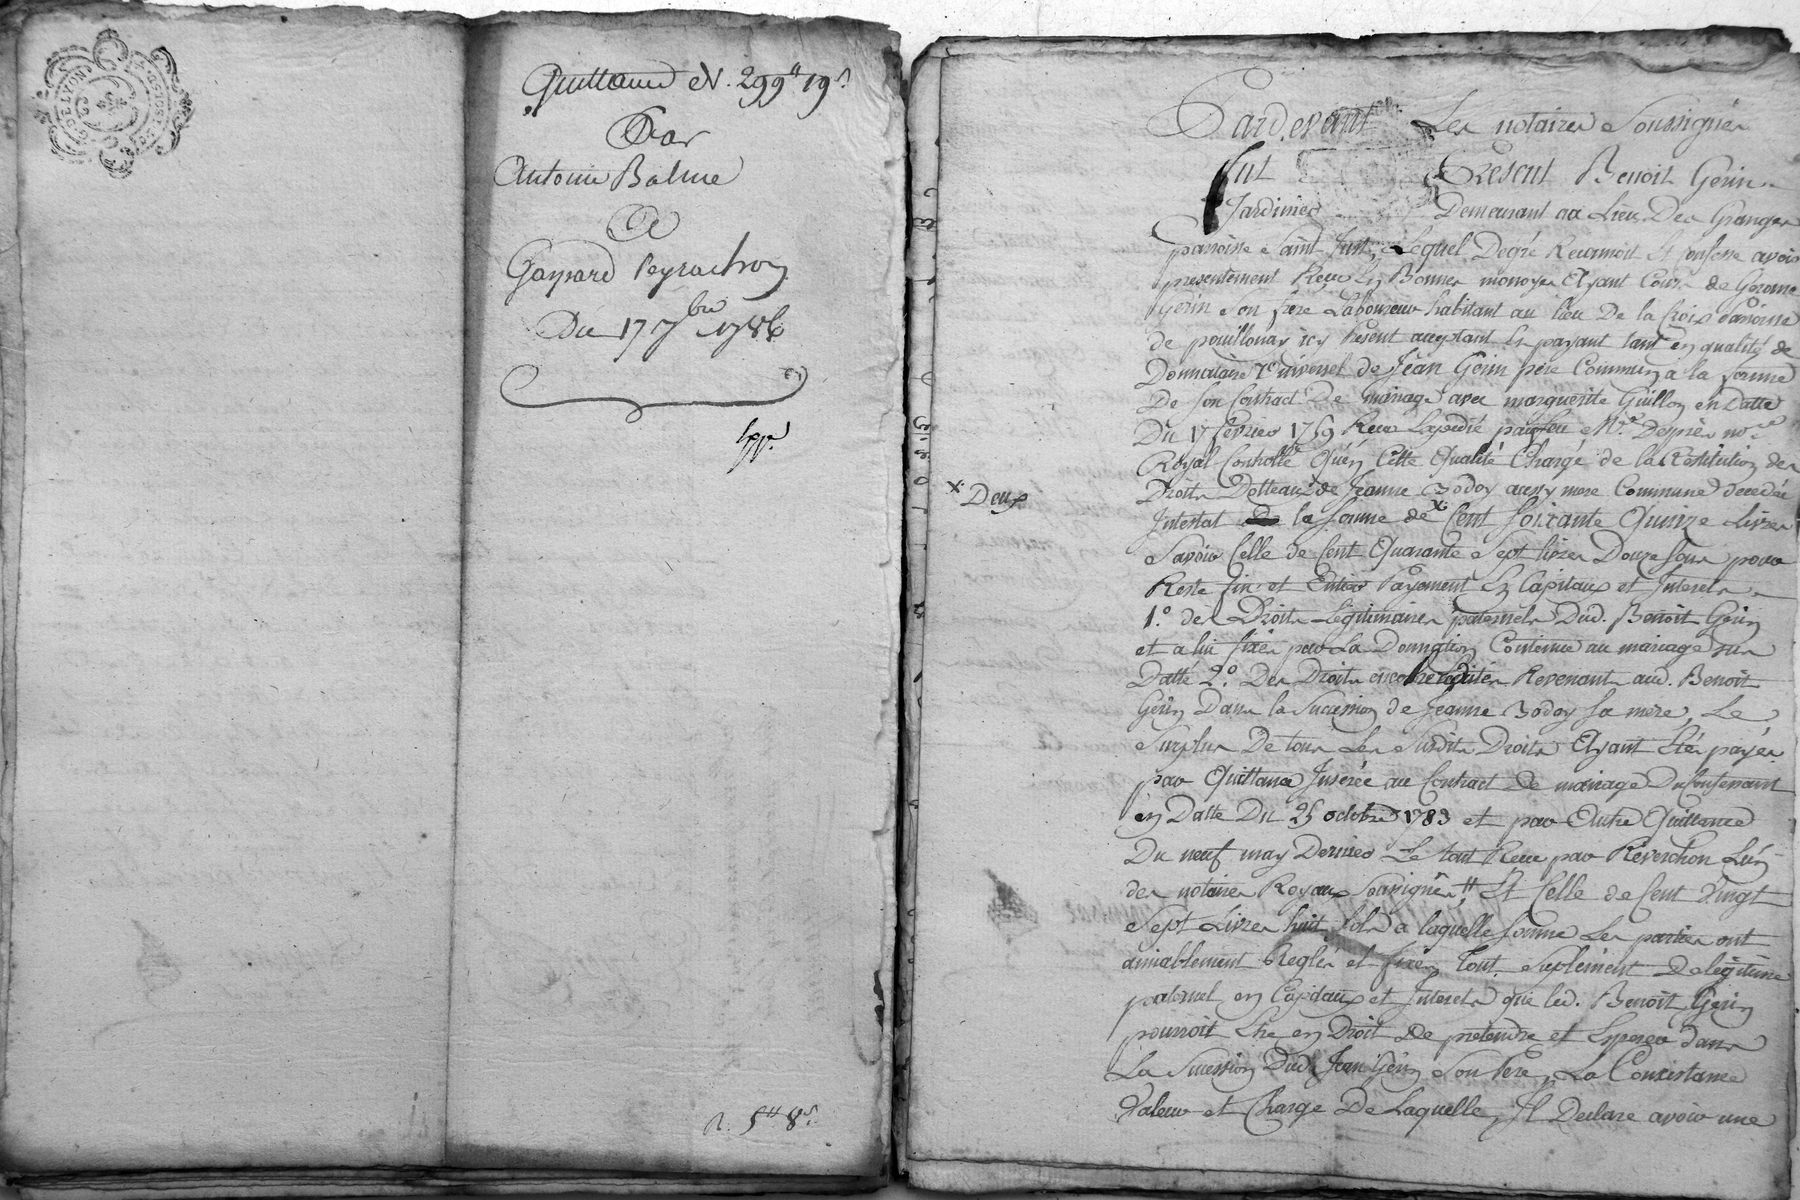 G. DE LYON
Quittance de 299# 19s
Par
Antoine Balme
A
Gaspard Peyrachon
Du 17 7bre 1786
R. 5# 8s
Pardevant Les notaires Soussignés
Fut Present Benoit Gerin
Jardinier Demeurant au Lieu Des Granges
paroisse Saint Just, Lequel Degré Reconnoit et Confesse avoir
presentement Reçu En Bonnes monoyes Ayant Cours de Gerome
Gerin Son frere Laboureur habitant au lieu De la Croix paroisse
de pouillonay icy Present acceptant Et payant tant en qualité de
Donnataire Universel de Jean Gerin pere Commun a la forme
De Son Contract De mariage avec marguerite Guillon en Datte
Du 17 fevrier 1769 Reçu Expedié par feu Me Desprès nore
Royal Controllé Qu'en Cette Qualité Chargé de la Restitution des
Droits Dotteaux de Jeanne Bodoy aussy mere Commune decedée
x Deux
Intestat la Somme de x Cent Soixante Quinze Livres
Savoir Celle de Cent Quarante Sept livres Douze Sous pour
Reste fin et Entier Payement En Capitaux et Interets
1.o des Droits Légitimaires paternels Dud. Benoit Gerin
et a lui fixés par La Donnation Contenue au mariage sus
Datté 2.o Des Droits encore hereditées Revenants aud. Benoit
Gerin Dans la Succession de Jeanne Bodoy Sa mere, Le
Surplus De tous Les Susdits Droits Ayant Etés payés
par Quittance Inserée au Contract de mariage Du Confessant
en Datte Du 25 octobre 1783 et par Autre Quittance
Du neuf may Dernier Le tout Reçu par Reverchon L'un
des notaires Royaux Soussignés, Et Celle de Cent Vingt
Sept Livres huit Sols a laquelle Somme Les parties ont
amiablement Reglés et fixés Tout Suplément De légitime
paternel en Capitaux et Interets que led. Benoit Gerin
pourroit Etre en Droit De pretendre et Esperer dans
La Succession Dud. Jean Gerin Son Pere, La Consistance
Valeur et Charge De Laquelle, Il Declare avoir une